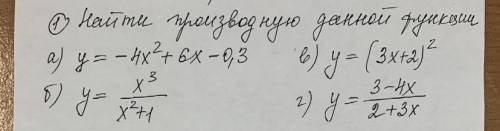 ① Найти производную данной функции
а) y = -4x² + 6x - 0,3 в) y = (3x+2)²
б) y = x³/(x²+1) г) y = (3-4x)/(2+3x)